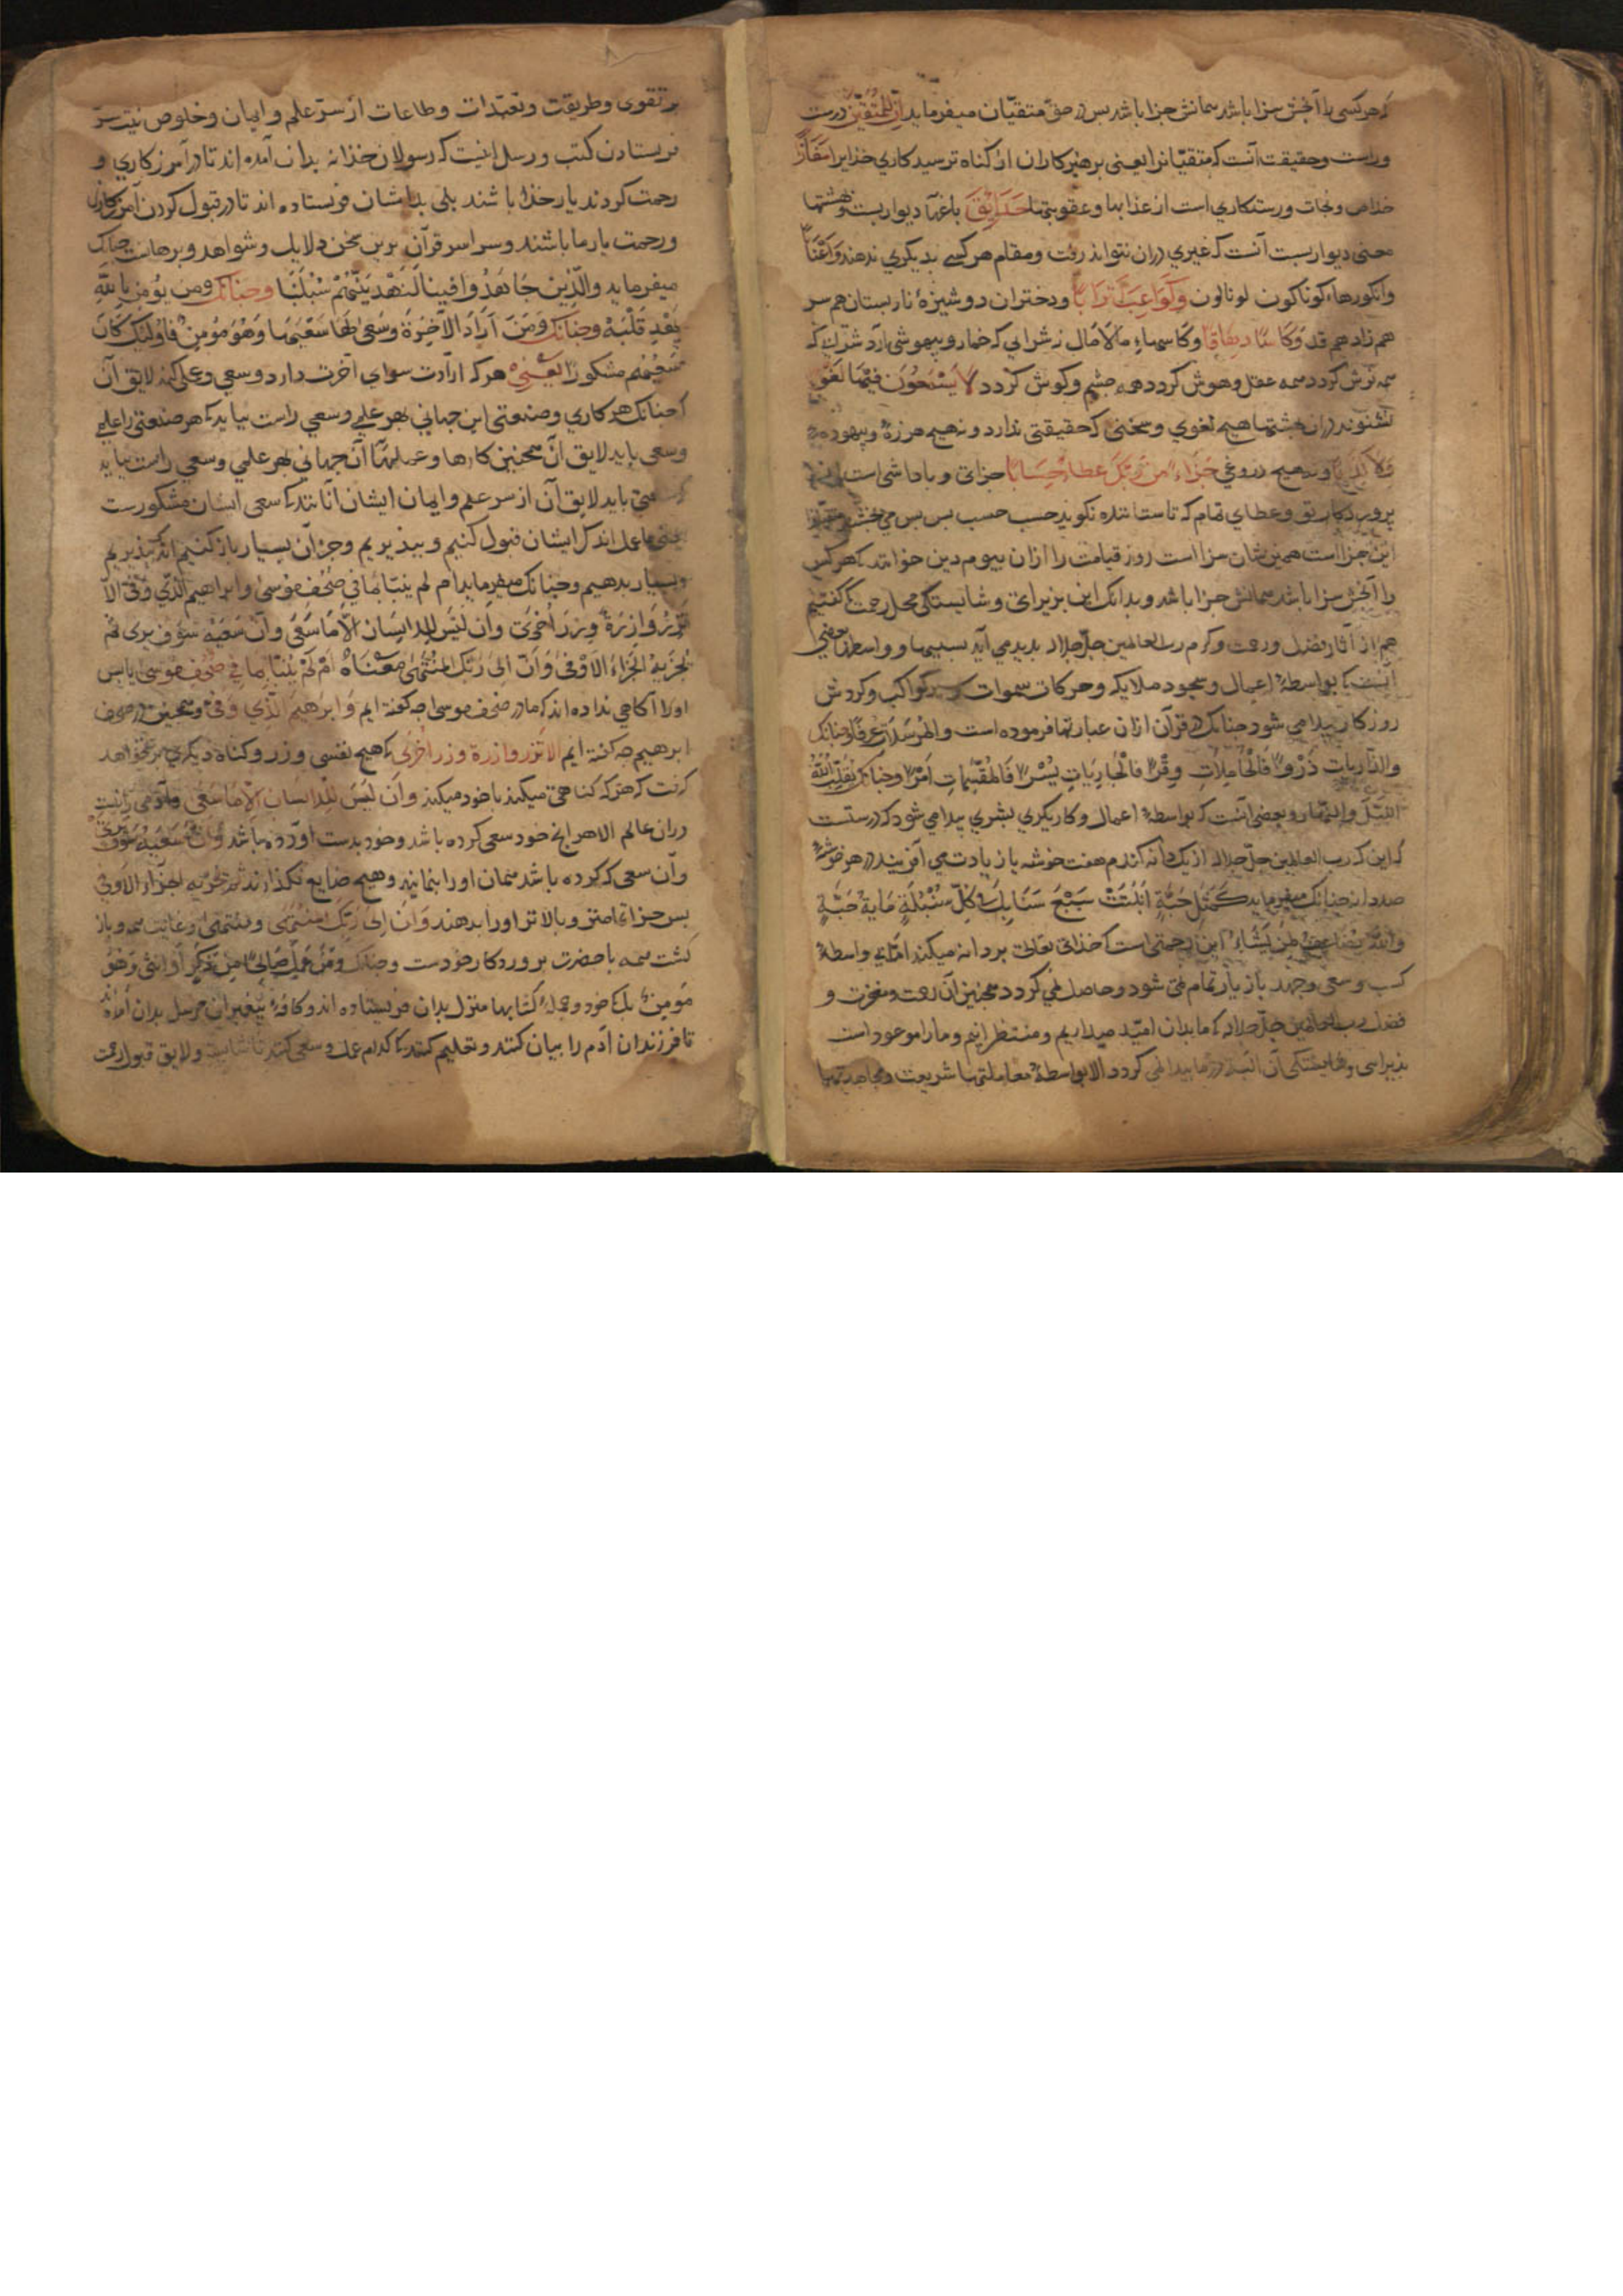 که هر کسی را آنچش سزا باشد همانش جزا باشد بس در حق متقیان میفرماید اِنَّ لِلْمُتَّقِینَ درست
وراست وحقیقت آنست که متقیانرا یعنی برهیزکاران از کناه ترسیدکاری خذایرا مَفَازًا
خلاص ونجات ورستکاری است از عذابها وعقوبتها حَدَایِقَ باغها دیواربست وبهشتها
معنی دیواربست آنست که غیری دران نتواند رفت ومقام هر کسی بدیکری ندهند وَاَعْنَابًا
وانکورهاء کوناکون لونالون وَکَوَاعِبَ اَتْرَابًا ودختران دوشیزهٔ ناربستان هم سر
هم زاد هم قد وَکَاْسًا دِهَاقًا وکاسهاء مالامال نه شرابی که خمار وبیهوشی آرد شرابی که
همه نوش کردد همه عقل وهوش کردد همه چشم وکوش کردد لَا یَسْمَعُونَ فِیهَا لَغْوًا
نشنوند دران بهشتها هیچ لغوی وسخنی که حقیقتی ندارد ونه هیچ هرزهٔ وبیهوده
وَلَا کِذَّابًا ونه هیچ دروغی جَزَاءً مِنْ رَبِّکَ عَطَاءً حِسَابًا جزائی وباداشی است
بروردکار تو وعطای تمام که تا ستاننده نکوید حسب حسب بس بس می بخشد
این جزا است همین شان سزا است روز قیامت را ازان بیوم دین خوانند که هر کس
را آنچش سزا باشد همانش جزا باشد وبدانک این بزیرائی وشایستکی محل رحمت که کفتیم
هم از آثار فضل ورحمت وکرم رب العالمین جل جلاله بدید می آید بسببها وواسطها بعضی
آنست که بواسطهٔ اعمال وسجود ملایکه وحرکات سموات کواکب وکردش
روزکار بیدا می شود چنانک در قرآن ازان عبارتها فرموده است والمُرْسَلَاتِ عُرْفًا وچنانک
والذَّارِیاتِ ذَرْوًا فَالْحَامِلَاتِ وِقْرًا فَالْجَارِیَاتِ یُسْرًا فَالْمُقَسِّمَاتِ اَمْرًا وچنانک یُقَلِّبُ اللّٰهُ
اللَّیْلَ والنَّهَار وبعضی آنست که بواسطهٔ اعمال وکاریکری بشری بیدا می شود که درستست
که این که رب العالمین جل جلاله از یک دانه کندم هفت خوشه یا زیادت می آفریند در هر خوشهٔ
صد دانه چنانک میفرماید کَمَثَلِ حَبَّةٍ اَنْبَتَتْ سَبْعَ سَنَابِلَ فِی کُلِّ سُنْبُلَةٍ مِایَةُ حَبَّةٍ
وَاللّٰهُ یُضَاعِفُ لِمَنْ یَشَاءُ این رحمتی است که خذای تعالی بر دانه میکند امّا بی واسطهٔ
کسب وسعی وجهد بازیار تمام نمی شود وحاصل نمی کردد همچنین آن رحمت ومغفرت و
فضل رب العالمین جل جلاله که ما بدان امّید میداریم ومنتظر انیم ومارا موعود است
بذیرائی وشایستکی آن البته در ما بیدا نمی کردد الا بواسطهٔ معاملتها شریعت ومجاهدتها
وتقوی وطریقت وتعبّدات وطاعات از سر علم وایمان وخلوص نیت سرّ
فرستادن کتب ورسل اینست که رسولان خذا نه بدان آمده اند تا در آمرزکاری و
رحمت کردن یار خذا باشند بلی بدانشان فرستاده اند تا در قبول کردن آمرزکاری
ورحمت یار ما باشند وسراسر قرآن برین سخن دلایل وشواهد وبرهانست چنانک
میفرماید والَّذِینَ جَاهَدُوا فِینَا لَنَهْدِیَنَّهُمْ سُبُلَنَا وچنانک ومن یُؤْمِنْ بِاللّٰهِ
یَهْدِ قَلْبَهُ وچنانک وَمَنْ اَرَادَ الْآخِرَةَ وَسَعَی لَهَا سَعْیَهَا وَهُوَ مُؤمِنٌ فَاُولٰئِکَ کَانَ
سَعْیُهُم مشکورًا یَعْنِی هر که ارادت سرای آخرت دارد وسعی وعملی کند لایق آن
چنانک هر کاری وصنعتی این جهانی بهر علمی وسعی راست نیاید که هر صنعتی را علمی
وسعی باید لایق آن همچنین کارها وعملهاء آن جهانی بهر علمی وسعی راست نیاید
سعی باید لایق آن از سر علم وایمان ایشان آنانند که سعی ایشان مشکورست
یعنی ما عمل اندک ایشان قبول کنیم وببذیریم وجزاء آن بسیار باز کنیم اندک بذیریم
وبسیار بدهیم وچنانک میفرماید ام لم یُنَبَّأ بِمَا فِی صُحُفِ مُوسَی وابراهیم الَّذِی وَفّٰی اَلَّا
تَزِرُ وَازِرَةٌ وِزْرَ اُخْرٰی وَاَن لَیْسَ لِلْاِنْسَانِ اِلَّا مَا سَعَی وَاَنَّ سَعْیَهُ سَوْفَ یُرٰی ثُمَّ
یُجْزَیهُ الْجَزَاءَ الْاَوْفٰی وَاَنَّ اِلَی رَبِّکَ الْمُنْتَهٰی مَعْنَاهُ اَمْ لَمْ یُنَبَّأ بِمَا فِی صُحُفِ مُوسَی یا بس
اورا آکاهی نداده اند که ما در صحف موسی چه کفته ایم وَاِبْرَاهِیمَ الَّذِی وَفّٰی وهمچنین در صحف
ابرهیم چه کفته ایم اَلَّا تَزِرُ وازرة وزر اُخْرٰی که هیچ نفسی وزر وکناه دیکری بر نخواهد
کرفت که هر که کناهی میکند با خود میکند وَاَن لَیْسَ لِلْاِنْسَانِ اِلَّا مَا سَعَی وآدمی را نیست
دران عالم الا هر انج خود سعی کرده باشد وخود بدست آورده باشد وَاَنَّ سَعْیَهُ سَوْفَ یُرٰی
وآن سعی که کرده باشد همان اورا بنمایند وهیچ ضایع نکذارند ثُمَّ یُجْزَیهُ الْجَزَاءَ الْاَوْفٰی
بس جزاء تمامتر وبالاتر اورا بدهند وَاَنَّ اِلٰی رَبِّکَ الْمُنْتَهَی ومنتهی وغایت همه وباز
کشت همه با حضرت بروردکار خودست وچنانک وَمَنْ عَمِلَ صَالِحًا مِنْ ذَکَرٍ اَوْ اُنْثٰی وَهُوَ
مُؤمِنٌ بلک خود وجملهٔ کتابها منزل بدان فرستاده اند وکافهٔ بیغبران مرسل بدان آمده اند
تا فرزندان آدم را بیان کنند وتعلیم کنند که کدام عمل وسعی کنند تا شایسته ولایق قبول رحمت